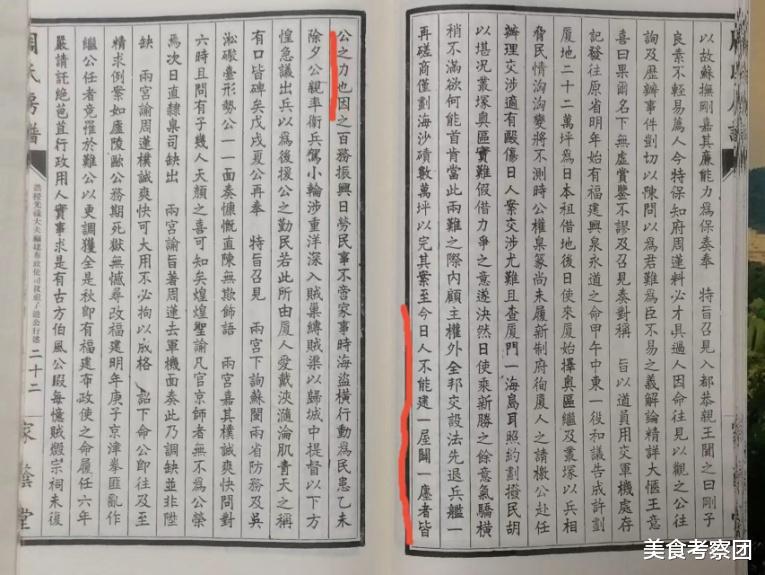 以故蘇撫剛嘉其廉能力為保奏奉 特旨召見入都恭親王聞之曰剛子
良素不輕易薦人今特保知府周蓮料必才具過人因命往見以觀之公往
詢及歷辦事件剴切以陳問以為君難為臣不易之義解論精詳大愜王意
喜曰果爾名下無虛賞鑒不謬及召見奏對稱 旨以道員用交軍機處存
記發往原省明年始有福建興泉永道之命甲午中東一役和議告成許劃
廈地二十二萬坪為日本租借地後日使來廈始擇奥區繼及叢塚以兵相
脅民情洶洶變將不測時公權臬篆尚未履新制府徇廈人之請檄公赴任
辦理交涉適有毆傷日人案交涉尤難且查廈門一海島耳照約劃撥民胡
以堪况叢塚奥區實難假借力爭之意遂決然日使乘新勝之餘意氣驕橫
稍不滿欲何能首肯當此兩難之際內顧主權外全邦交設法先退兵艦一
再磋商僅劃海沙磧數萬坪以完其案至今日人不能建一屋闢一廛者皆
公之力也因之百務振興日勞民事不啻家事時海盜橫行動為民患乙未
除夕公親率衛兵駕小輪涉重洋深入賊巢縛賊渠以歸城中提督以下方
惶急議出兵以為後援公之勤民若此所由廈人愛戴浹瀜淪肌青天之稱
有口皆碑矣戊戌夏公再奉 特旨召見 兩宮下詢蘇閩兩省防務及吳
淞礮臺形勢公一一面奏慷慨直陳無欺飾語 兩宮嘉其樸誠爽快問對
六時且問有子幾人天顏之喜可知矣煌煌聖諭凡官京師者無不為公榮
焉次日直隸臬司缺出 兩宮諭旨著周蓮去軍機面奏此乃調缺並非陞
缺 兩宮諭周蓮樸誠爽快可大用不必拘以成格 詔下命公即往及至
精求例案如廬陵歐公務期死獄無憾尋改福建明年庚子京津拳匪亂作
繼公任者竟罹於難公以更調獲全是秋即有福建布政使之命履任六年
嚴請託絕苞苴行政用人實事求是有古方伯風公暇每憶賊燬宗祠未復
周氏房譜
誥授光祿大夫福建布政使司投迎子遊公行述
二十二
家蔭堂
美食考察团